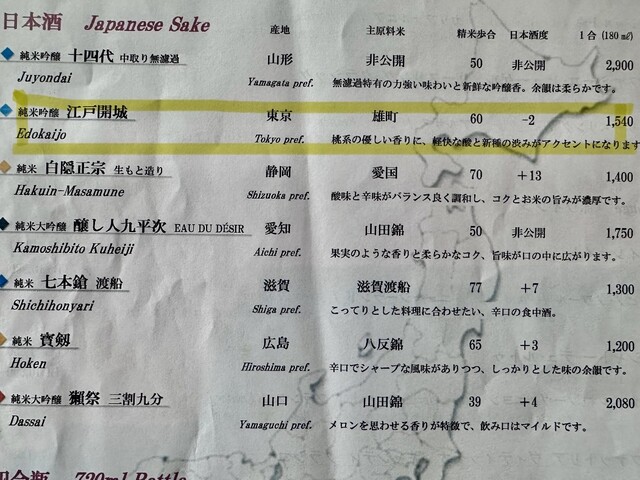 日本酒 Japanese Sake 産地 主原料米 精米歩合 日本酒度 1合 (180㎖)
純米吟醸 十四代 中取り無濾過 山形 非公開 50 非公開 2,900
Juyondai Yamagata pref. 無濾過特有の力強い味わいと新鮮な吟醸香。余韻は柔らかです。
純米吟醸 江戸開城 東京 雄町 60 -2 1,540
Edokaijo Tokyo pref. 桃系の優しい香りに、軽快な酸と新種の渋みがアクセントになります
純米 白隠正宗 生もと造り 静岡 愛国 70 +13 1,400
Hakuin-Masamune Shizuoka pref. 酸味と辛味がバランス良く調和し、コクとお米の旨みが濃厚です。
純米大吟醸 醸し人九平次 EAU DU DÉSIR 愛知 山田錦 50 非公開 1,750
Kamoshibito Kuheiji Aichi pref. 果実のような香りと柔らかなコク、旨味が口の中に広がります。
純米 七本鎗 渡船 滋賀 滋賀渡船 77 +7 1,300
Shichihonyari Shiga pref. こってりとした料理に合わせたい、辛口の食中酒。
純米 寳剱 広島 八反錦 65 +3 1,200
Hoken Hiroshima pref. 辛口でシャープな風味がありつつ、しっかりとした味の余韻です。
純米大吟醸 獺祭 三割九分 山口 山田錦 39 +4 2,080
Dassai Yamaguchi pref. メロンを思わせる香りが特徴で、飲み口はマイルドです。
四合瓶 720ml Bottle